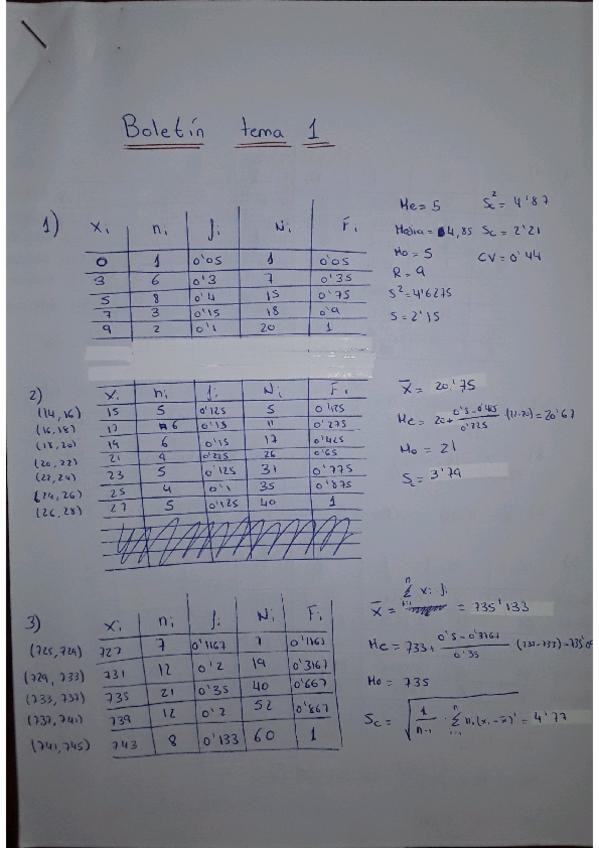 Boletín tema 1
1) Xi ni fi Ni Fi
0 1 0'05 1 0'05
3 6 0'3 7 0'35
5 8 0'4 15 0'75
7 3 0'15 18 0'9
9 2 0'1 20 1
Me = 5 Sc² = 4'87
Media = 4,85 Sc = 2'21
Mo = 5 CV = 0'44
R = 9
S² = 4'6275
S = 2'15
2) Xi ni fi Ni Fi
(14,16) 15 5 0'125 5 0'125
(16,18) 17 6 0'15 11 0'275
(18,20) 19 6 0'15 17 0'425
(20,22) 21 9 0'225 26 0'65
(22,24) 23 5 0'125 31 0'775
(24,26) 25 4 0'1 35 0'875
(26,28) 27 5 0'125 40 1
X̄ = 20'75
Me = 20 + 0'5-0'425 / 0'225 (22-20) = 20'67
Mo = 21
Sc = 3'79
3) Xi ni fi Ni Fi
(725,729) 727 7 0'1167 7 0'1167
(729,733) 731 12 0'2 19 0'3167
(733,737) 735 21 0'35 40 0'667
(737,741) 739 12 0'2 52 0'867
(741,745) 743 8 0'133 60 1
X̄ = Σ xi fi = 735'133
Me = 733 + 0'5-0'3167 / 0'35
Mo = 735
Sc = √ 1/n-1 · Σ ni(xi-x̄)² = 4'77